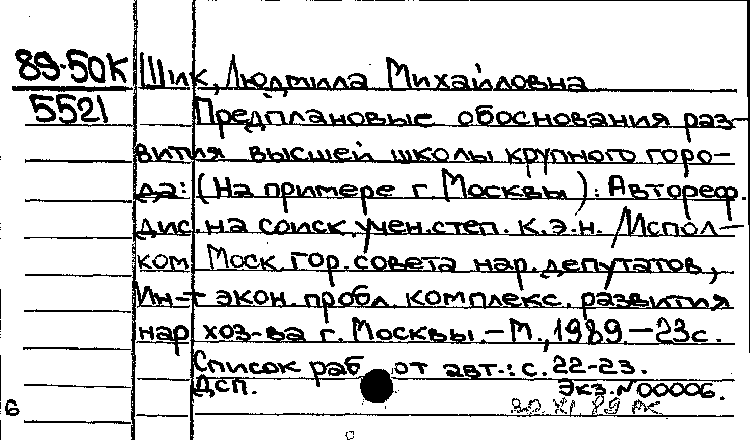 89-50К Шик, Людмила Михайловна
5521 Предплановые обоснования раз-
вития высшей школы крупного горо-
да: (На примере г. Москвы): Автореф.
дис. на соиск. учен. степ. к.э.н. /Испол-
ком Моск. гор. совета нар. депутатов,
Ин-т экон. пробл. комплекс. развития
нар. хоз-ва г. Москвы. - М., 1989 - 23с.
Список раб. от авт.: с. 22-23.
ДСП. Экз. N00006.
6